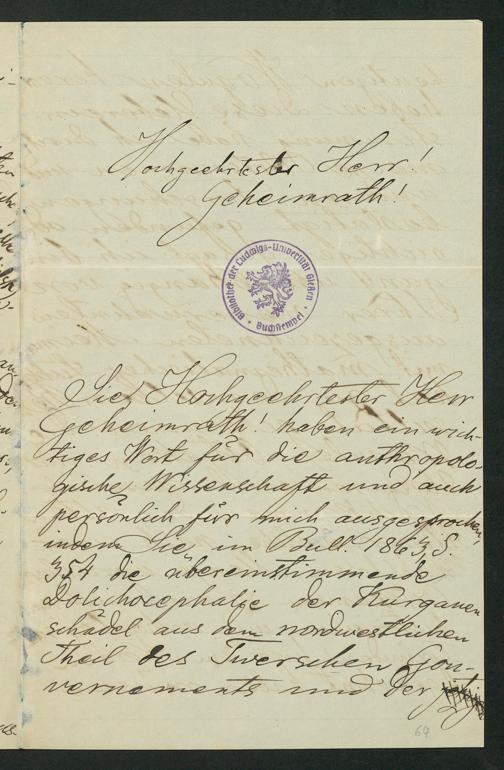 Hochgeehrtester Herr!
Geheimrath!
Bibliothek der Ludwigs-Universität Gießen.
Buchstempel.
Sie, Hochgeehrtester Herr
Geheimrath! haben ein wich-
tiges Wort für die anthropolo-
gische Wissenschaft und auch
persönlich für mich ausgesprochen,
indem Sie, im Bull. 1863, S.
354 die übereinstimmende
Dolichocephalie der Kurganen
schädel aus dem nordwestlichen
Theil des Twerschen Gou-
vernements und der
64